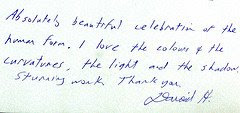 Absolutely beautiful celebration of the
human form. I love the colours & the
curvatures, the light and the shadow.
Stunning work. Thank you.
David H.